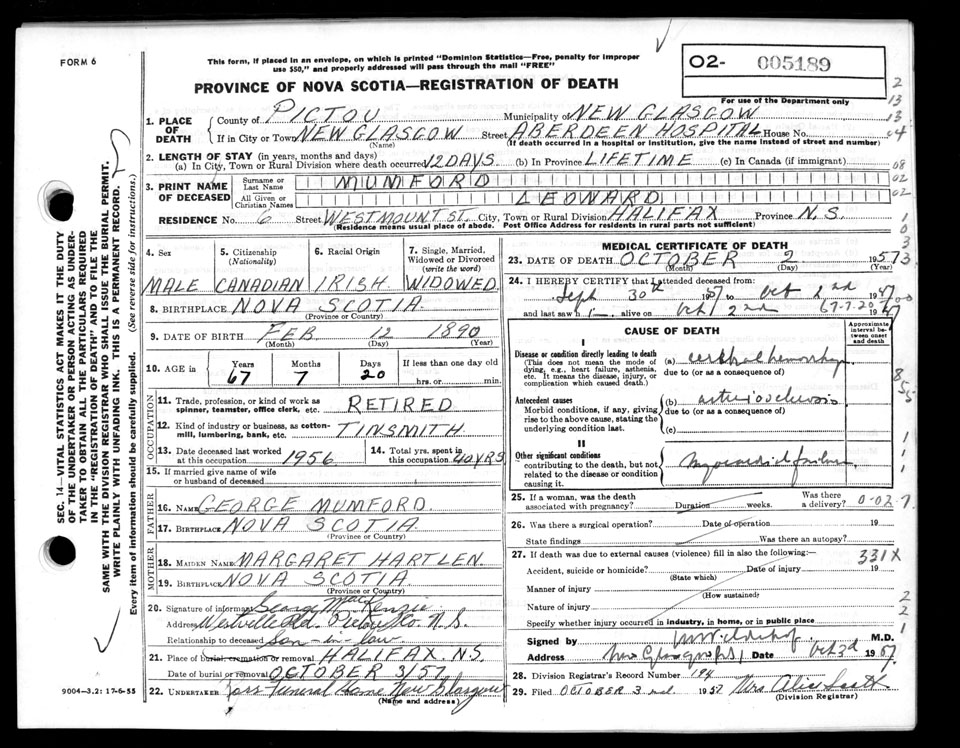 FORM 6
This form, if placed in an envelope, on which is printed "Dominion Statistics—Free, penalty for improper
use $50," and properly addressed will pass through the mail "FREE"
PROVINCE OF NOVA SCOTIA—REGISTRATION OF DEATH
O2- 005189
For use of the Department only
SEC. 14—VITAL STATISTICS ACT MAKES IT THE DUTY
OF THE UNDERTAKER OR PERSON ACTING AS UNDER-
TAKER TO OBTAIN ALL THE PARTICULARS REQUIRED
IN THE "REGISTRATION OF DEATH" AND TO FILE THE
SAME WITH THE DIVISION REGISTRAR WHO SHALL ISSUE THE BURIAL PERMIT.
WRITE PLAINLY WITH UNFADING INK. THIS IS A PERMANENT RECORD.
Every item of information should be carefully supplied. (See reverse side for instructions.)
1. PLACE OF DEATH
County of PICTOU Municipality of NEW GLASGOW
If in City or Town NEW GLASGOW Street ABERDEEN HOSPITAL House No.
(Name) (If death occurred in a hospital or institution, give the name instead of street and number)
2. LENGTH OF STAY (in years, months and days)
(a) In City, Town or Rural Division where death occurred 12 DAYS (b) In Province LIFETIME (c) In Canada (if immigrant)
3. PRINT NAME OF DECEASED
Surname or Last Name MUMFORD
All Given or Christian Names LEONARD
RESIDENCE No. 6 Street WESTMOUNT ST. City, Town or Rural Division HALIFAX Province N.S.
(Residence means usual place of abode. Post Office Address for residents in rural parts not sufficient)
4. Sex 5. Citizenship (Nationality) 6. Racial Origin 7. Single, Married, Widowed or Divorced (write the word)
MALE CANADIAN IRISH WIDOWED
8. BIRTHPLACE NOVA SCOTIA
(Province or Country)
9. DATE OF BIRTH FEB 12 1890
(Month) (Day) (Year)
10. AGE in Years Months Days If less than one day old
67 7 20 hrs. or min.
OCCUPATION
11. Trade, profession, or kind of work as spinner, teamster, office clerk, etc. RETIRED
12. Kind of industry or business, as cotton-mill, lumbering, bank, etc. TINSMITH
13. Date deceased last worked at this occupation 1956 14. Total yrs. spent in this occupation 40 YRS
15. If married give name of wife or husband of deceased
FATHER
16. NAME GEORGE MUMFORD
17. BIRTHPLACE NOVA SCOTIA
(Province or Country)
MOTHER
18. MAIDEN NAME MARGARET HARTLEN
19. BIRTHPLACE NOVA SCOTIA
(Province or Country)
20. Signature of informant George MacKenzie
Address Westville Rd. Pictou Co. N.S.
Relationship to deceased Son-in-law
21. Place of burial, cremation or removal HALIFAX N.S.
Date of burial or removal OCTOBER 3/57
22. UNDERTAKER Funeral Home New Glasgow
(Name and address)
9004-3.2: 17-6-55
MEDICAL CERTIFICATE OF DEATH
23. DATE OF DEATH OCTOBER 2 1957
(Month) (Day) (Year)
24. I HEREBY CERTIFY that I attended deceased from:
Sept 30th 1957 to Oct 2nd 1957
and last saw h i— alive on Oct 2nd 1957
67-7-20
CAUSE OF DEATH
Approximate interval between onset and death
I
Disease or condition directly leading to death
(This does not mean the mode of dying, e.g., heart failure, asthenia, etc. It means the disease, injury, or complication which caused death.)
(a) cerebral hemorrhage
due to (or as a consequence of)
Antecedent causes
Morbid conditions, if any, giving rise to the above cause, stating the underlying condition last.
(b) arteriosclerosis
due to (or as a consequence of)
(c)
II
Other significant conditions
contributing to the death, but not related to the disease or condition causing it.
Myocardial failure
25. If a woman, was the death associated with pregnancy? Duration weeks. Was there a delivery?
0-02-7
26. Was there a surgical operation? Date of operation 19
State findings Was there an autopsy?
27. If death was due to external causes (violence) fill in also the following:—
331X
Accident, suicide or homicide? Date of injury 19
(State which)
Manner of injury
(How sustained)
Nature of injury
Specify whether injury occurred in industry, in home, or in public place
Signed by M.D.
Address New Glasgow NS Date Oct 3d 1957
28. Division Registrar's Record Number 194
29. Filed OCTOBER 3 1957 Mrs Alice Scott
(Division Registrar)